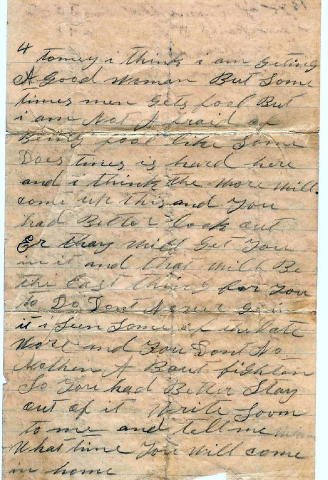 4
tomey i think i am geting
A Good Woman But Some
times men gets fool But
i am Not A fraid of
Being fool like Some
Does times is hard here
and i think the more will
come up this and you
had Better look out
Er thay will Get you
in it and that will Be
the Last thing for you
to Do Dont Never Go in
it i Seen Some of the late
Wore and you Dont No
Nothen A Bout fighten
So you had Better Stay
out of it Write Soon
to me and tell me
What time you will come
in home